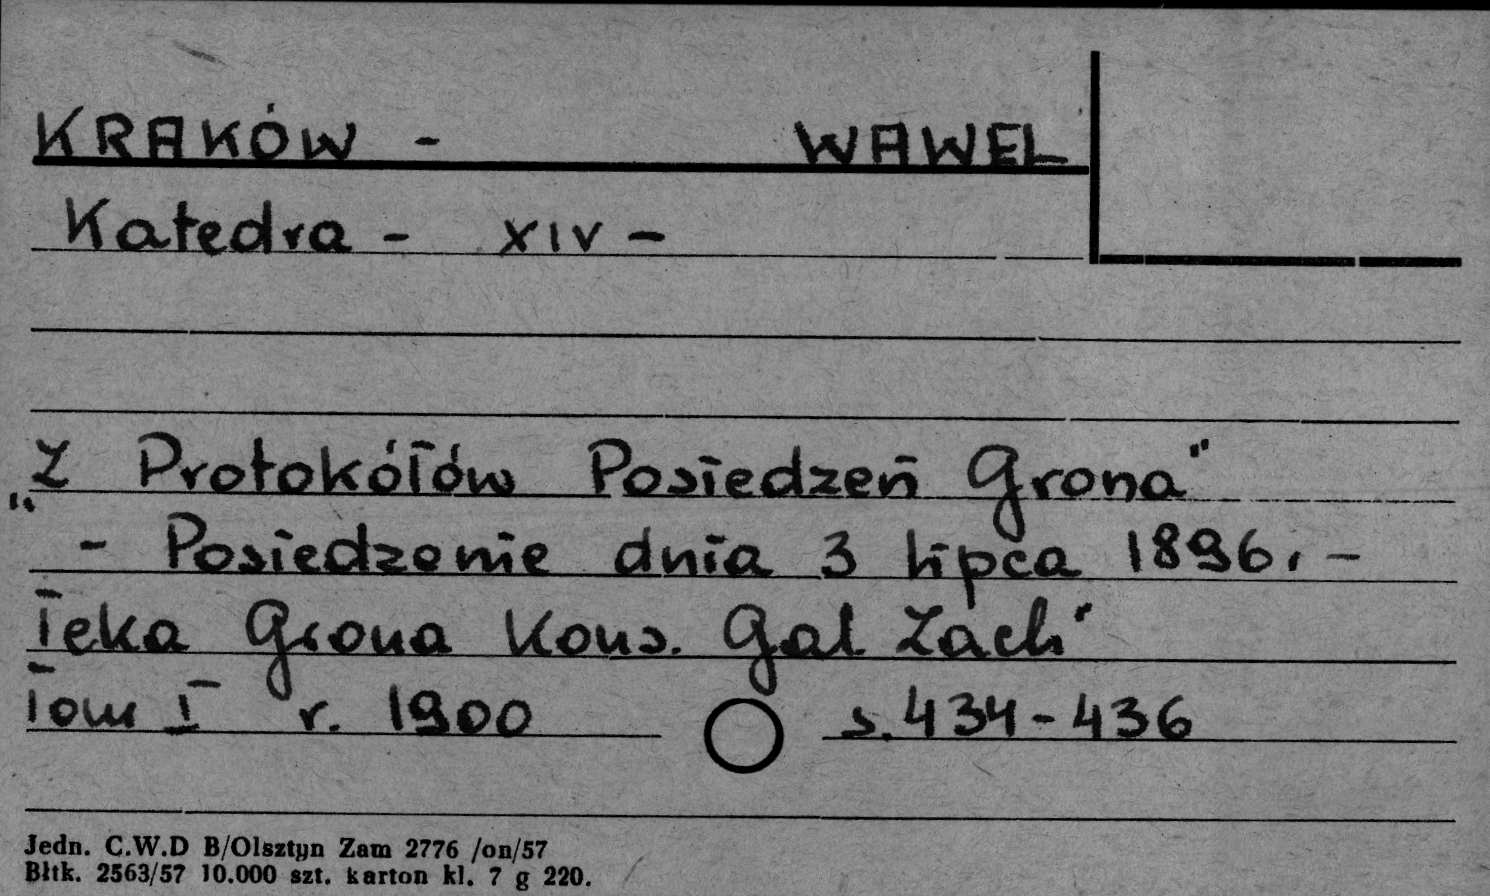 KRAKÓW - WAWEL
Katedra - XIV -
"Z Protokółów Posiedzeń Grona"
- Posiedzenie dnia 3 lipca 1896. -
Teka Grona Kons. Gal Zach"
Tom I r. 1900 s. 434-436
Jedn. C.W.D B/Olsztyn Zam 2776 /on/57
Błtk. 2563/57 10.000 szt. karton kl. 7 g 220.